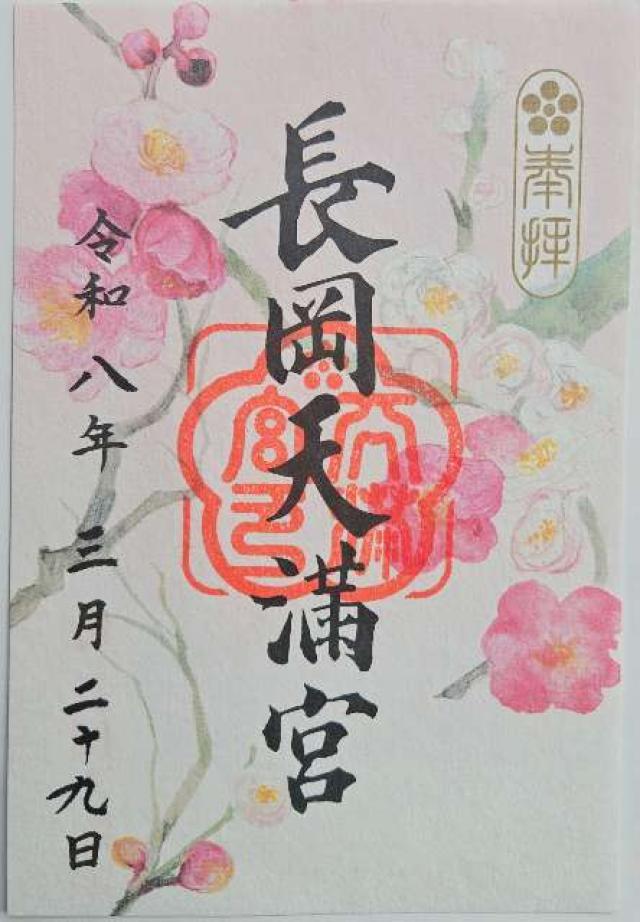 奉拝
長岡天満宮
令和八年三月二十九日
天満宮印